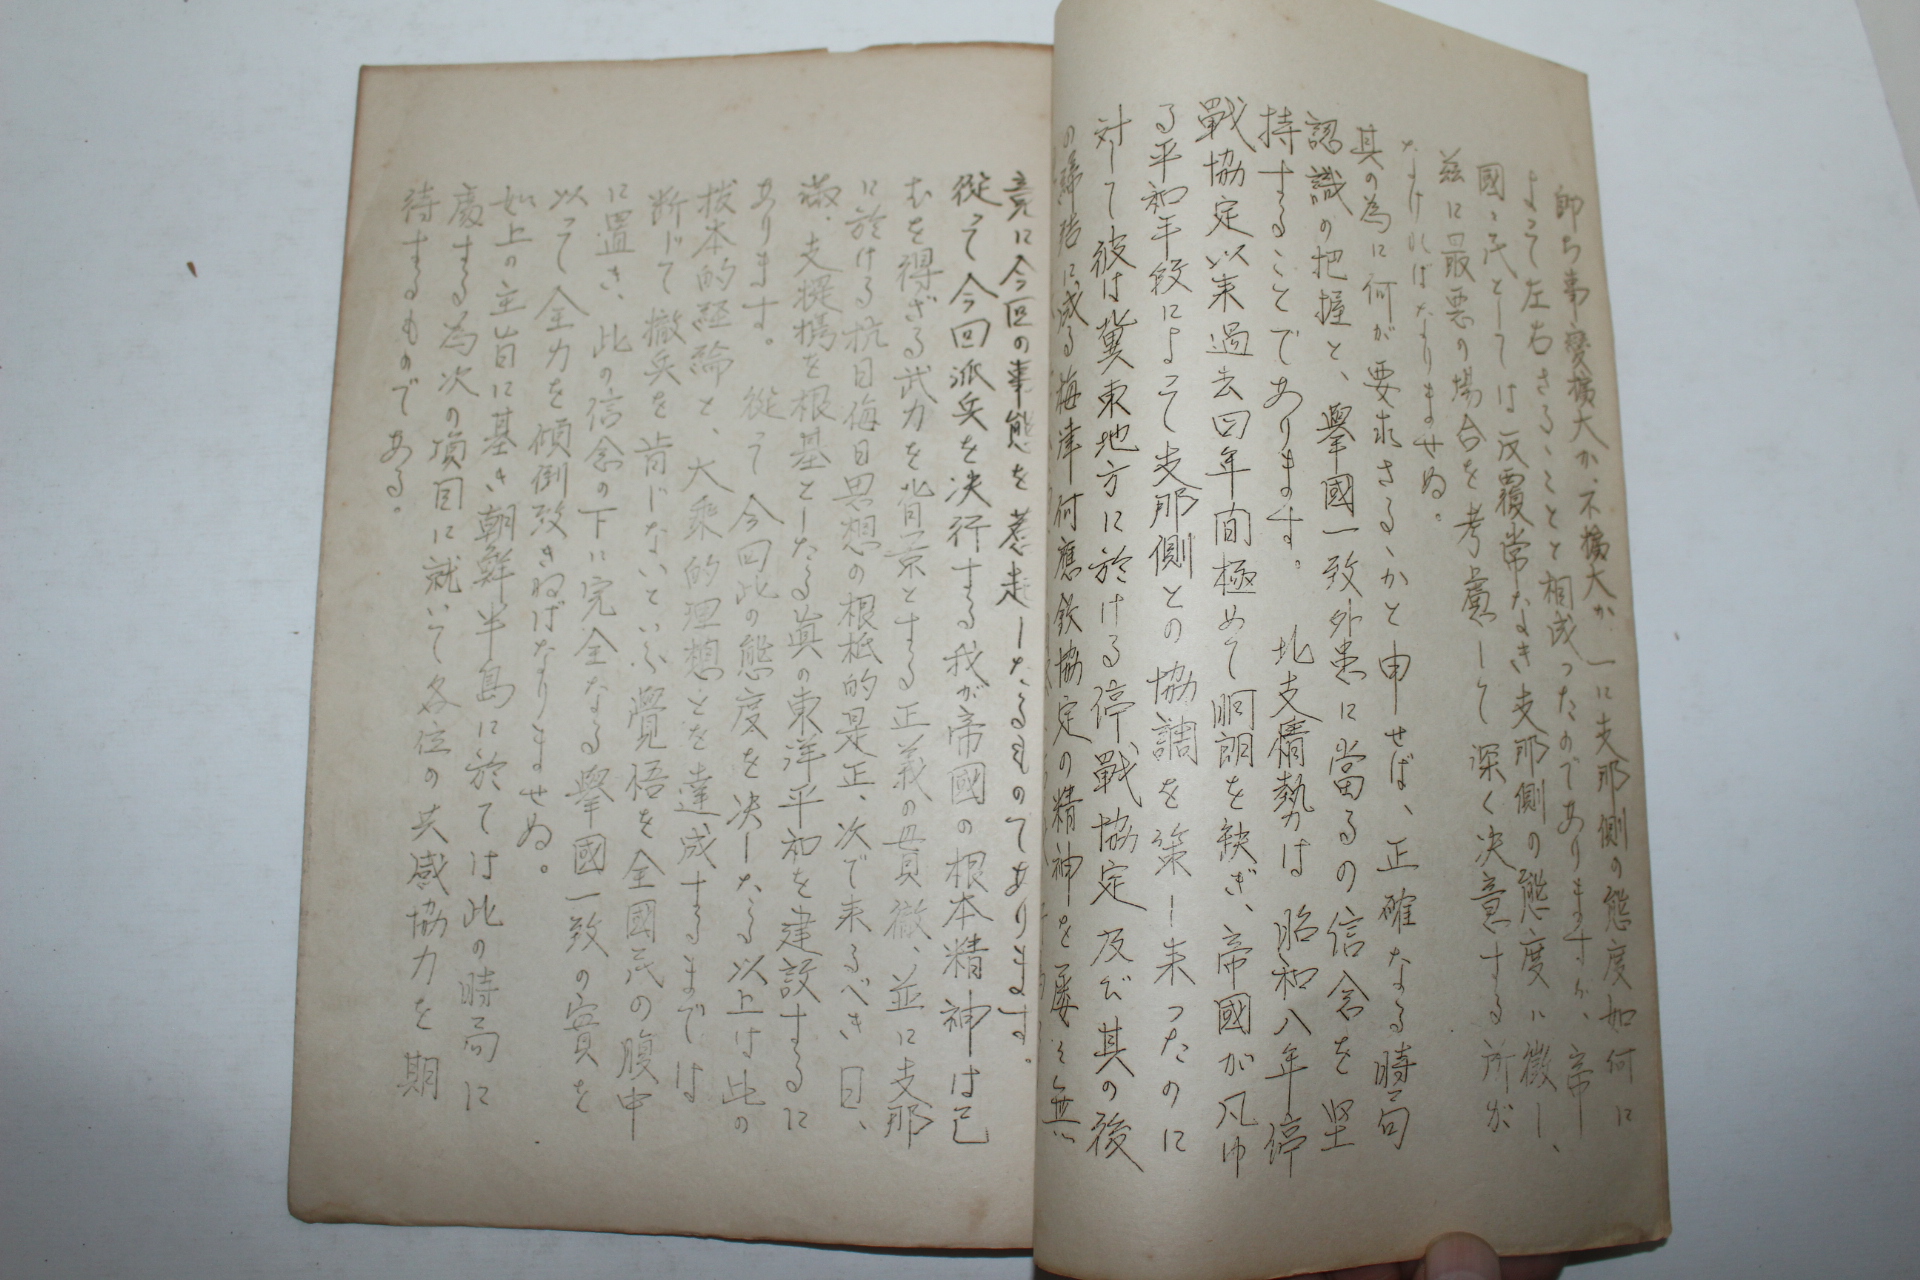 即ち事変擴大か不擴大か一に支那側の態度如何に
よって左右さるゝことと相成ったのでありますが、帝
國々民としては反覆常なき支那側の態度に徴し、
茲に最悪の場合を考慮して深く決意する所が
なければなりませぬ。
其の為に何が要求さるゝかと申せば、正確なる時局
認識の把握と、擧國一致外患に當るの信念を堅
持することであります。 北支情勢は昭和八年停
戰協定以来過去四年間極めて明朗を缺ぎ、帝國が凡ゆ
る平和手段によって支那側との協調を策し来ったのに
対して彼は冀東地方に於ける停戰協定及び其の後
の締結に成る梅津何應欽協定の精神を屡々無
竟に今回の事態を惹起したるものてあります。
従って今回派兵を決行する我が帝國の根本精神は已
むを得ざる武力を背景とする正義の貫徹、並に支那
に於ける抗日侮日思想の根柢的是正、次で来るべき日、
滿、支提携を根基としたる眞の東洋平和を建設するに
あります。 従て今回此の態度を決したる以上は此の
抜本的経論と、大乘的理想とを達成するまでは
断じて撤兵を肯じないといふ覺悟を全國民の腹中
に置き、此の信念の下に完全なる擧國一致の實を
以って全力を傾倒致さねばなりませぬ。
如上の主旨に基き朝鮮半島に於ては此の時局に
處する為次の項目に就いて各位の共感協力を期
待するものである。